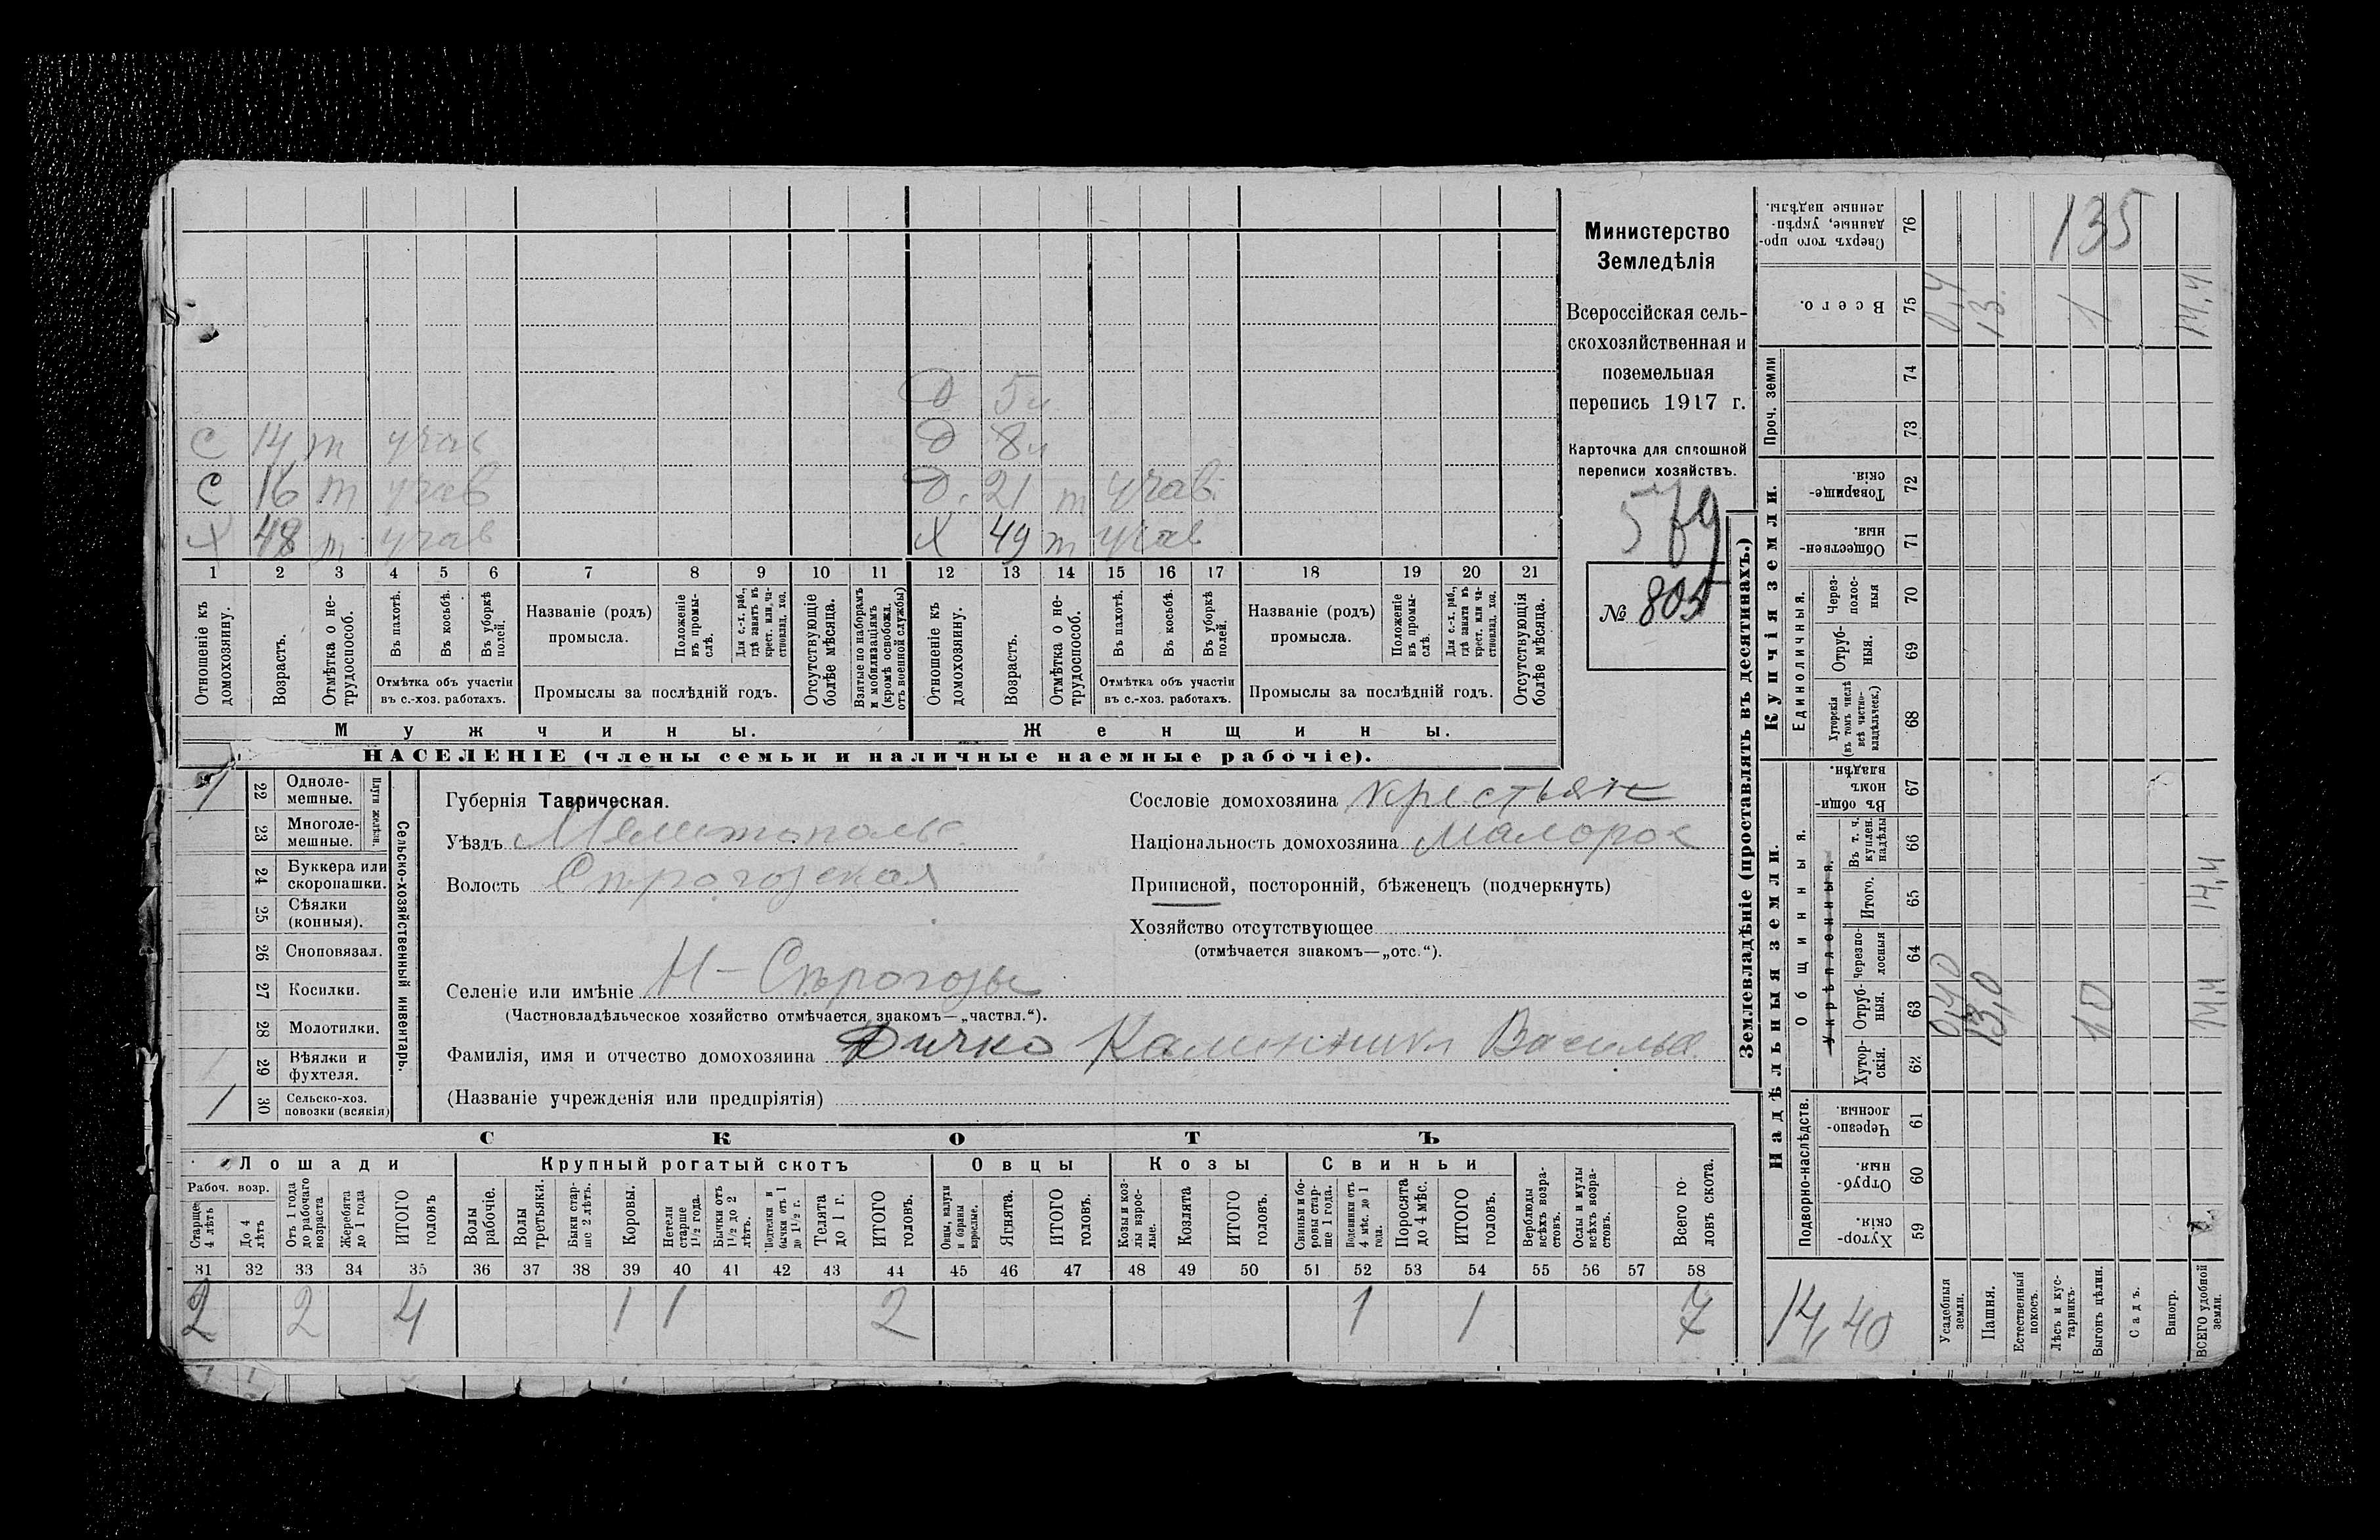 Министерство
Земледѣлія
Всероссійская сель-
скохозяйственная и
поземельная
перепись 1917 г.
Карточка для сплошной
переписи хозяйствъ.
579
№ 805
Д 5 н
С 14 т учав Д 8 н
С 16 т учав Д. 21 т учав.
Х 48 т учав Х 49 т учав
1 2 3 4 5 6 7 8 9 10 11 12 13 14 15 16 17 18 19 20 21
Отношеніе къ домохозяину.
Возрастъ.
Отмѣтка о не-трудоспособ.
Въ пахотѣ.
Въ косьбѣ.
Въ уборкѣ полей.
Отмѣтка объ участіи
въ с.-хоз. работахъ.
Названіе (родъ)
промысла.
Положеніе въ промы-слѣ.
Для с.-х. раб., гдѣ занятъ въ крест. или ча-стновлад. хоз.
Промыслы за послѣдній годъ.
Отсутствующіе болѣе мѣсяца.
Взятые по наборамъ и мобилизаціямъ (кромѣ освобожд. отъ военной службы)
Отношеніе къ домохозяину.
Возрастъ.
Отмѣтка о не-трудоспособ.
Въ пахотѣ.
Въ косьбѣ.
Въ уборкѣ полей.
Отмѣтка объ участіи
въ с.-хоз. работахъ.
Названіе (родъ)
промысла.
Положеніе въ промы-слѣ.
Для с.-х. раб., гдѣ занята въ крест. или ча-стновлад. хоз.
Промыслы за послѣдній годъ.
Отсутствующія болѣе мѣсяца.
Мужчины. Женщины.
НАСЕЛЕНІЕ (члены семьи и наличные наемные рабочіе).
Сельско-хозяйственный инвентарь.
Плуги желѣзн.
1 22 Одноле-мешные.
23 Многоле-мешные.
24 Буккера или скоропашки.
25 Сѣялки (конныя).
26 Сноповязал.
27 Косилки.
28 Молотилки.
1 29 Вѣялки и фухтеля.
1 30 Сельско-хоз. повозки (всякія)
Губернія Таврическая.
Уѣздъ Мелитополь.
Волость Спрогозская
Селеніе или имѣніе Н-Спрогозы
(Частновладѣльческое хозяйство отмѣчается знакомъ—„частвл.“).
Фамилія, имя и отчество домохозяина Дичко Калинникъ Василье
(Названіе учрежденія или предпріятія)
Сословіе домохозяина крестьян
Національность домохозяина малорос
Приписной, посторонній, бѣженецъ (подчеркнуть)
Хозяйство отсутствующее
(отмѣчается знакомъ—„отс.“).
СКОТЪ
Лошади Крупный рогатый скотъ Овцы Козы Свиньи
Рабоч. возр.
Старше 4 лѣтъ
До 4 лѣтъ
Отъ 1 года до рабочаго возраста
Жеребята до 1 года
ИТОГО головъ
Волы рабочіе.
Волы третьяки.
Быки стар-ше 2 лѣтъ.
Коровы.
Нетели старше 1½ года.
Бычки отъ 1½ до 2 лѣтъ.
Подтелки и бычки отъ 1 до 1½ г.
Телята до 1 г.
ИТОГО головъ.
Овцы, валухи и бараны взрослые.
Ягнята.
ИТОГО головъ.
Козы и коз-лы взрос-лые.
Козлята
ИТОГО головъ.
Свиньи и бо-ровы стар-ше 1 года.
Подсвинки отъ 4 мѣс. до 1 года.
Поросята до 4 мѣс.
ИТОГО головъ.
Верблюды всѣхъ возра-стовъ.
Ослы и мулы всѣхъ возра-стовъ.
Всего го-ловъ скота.
31 32 33 34 35 36 37 38 39 40 41 42 43 44 45 46 47 48 49 50 51 52 53 54 55 56 57 58
2 2 4 1 1 2 1 1 7
Землевладѣніе (проставлять въ десятинахъ.)
Надѣльныя земли.
Купчія земли.
Проч. земли
Подворно-наслѣдств.
Общинныя.
Укрѣпленныя.
Единоличныя.
59 Хутор-скія.
60 Отруб-ныя.
61 Черезпо-лосныя.
62 Хутор-скія.
63 Отруб-ныя.
64 Черезпо-лосныя
65 Итого.
66 Въ т. ч. куплен. надѣлы
67 Въ общи-номъ владѣн.
68 Хуторскія (въ томъ числѣ всѣ частно-владѣльческ.)
69 Отруб-ныя.
70 Через-полос-ныя
71 Обществен-ныя.
72 Товарище-скія.
73
74
75 Всего.
76 Сверхъ того про-данные, укрѣп-ленные надѣлы.
Усадебныя земли.
Пашня.
Естественный покосъ.
Лѣсъ и кус-тарникъ.
Выгонъ цѣлин.
Садъ.
Виногр.
ВСЕГО удобной земли.
14,40
0,40
13,0
1,0
14,4
14,4
0,4
13.
1
14,4
135